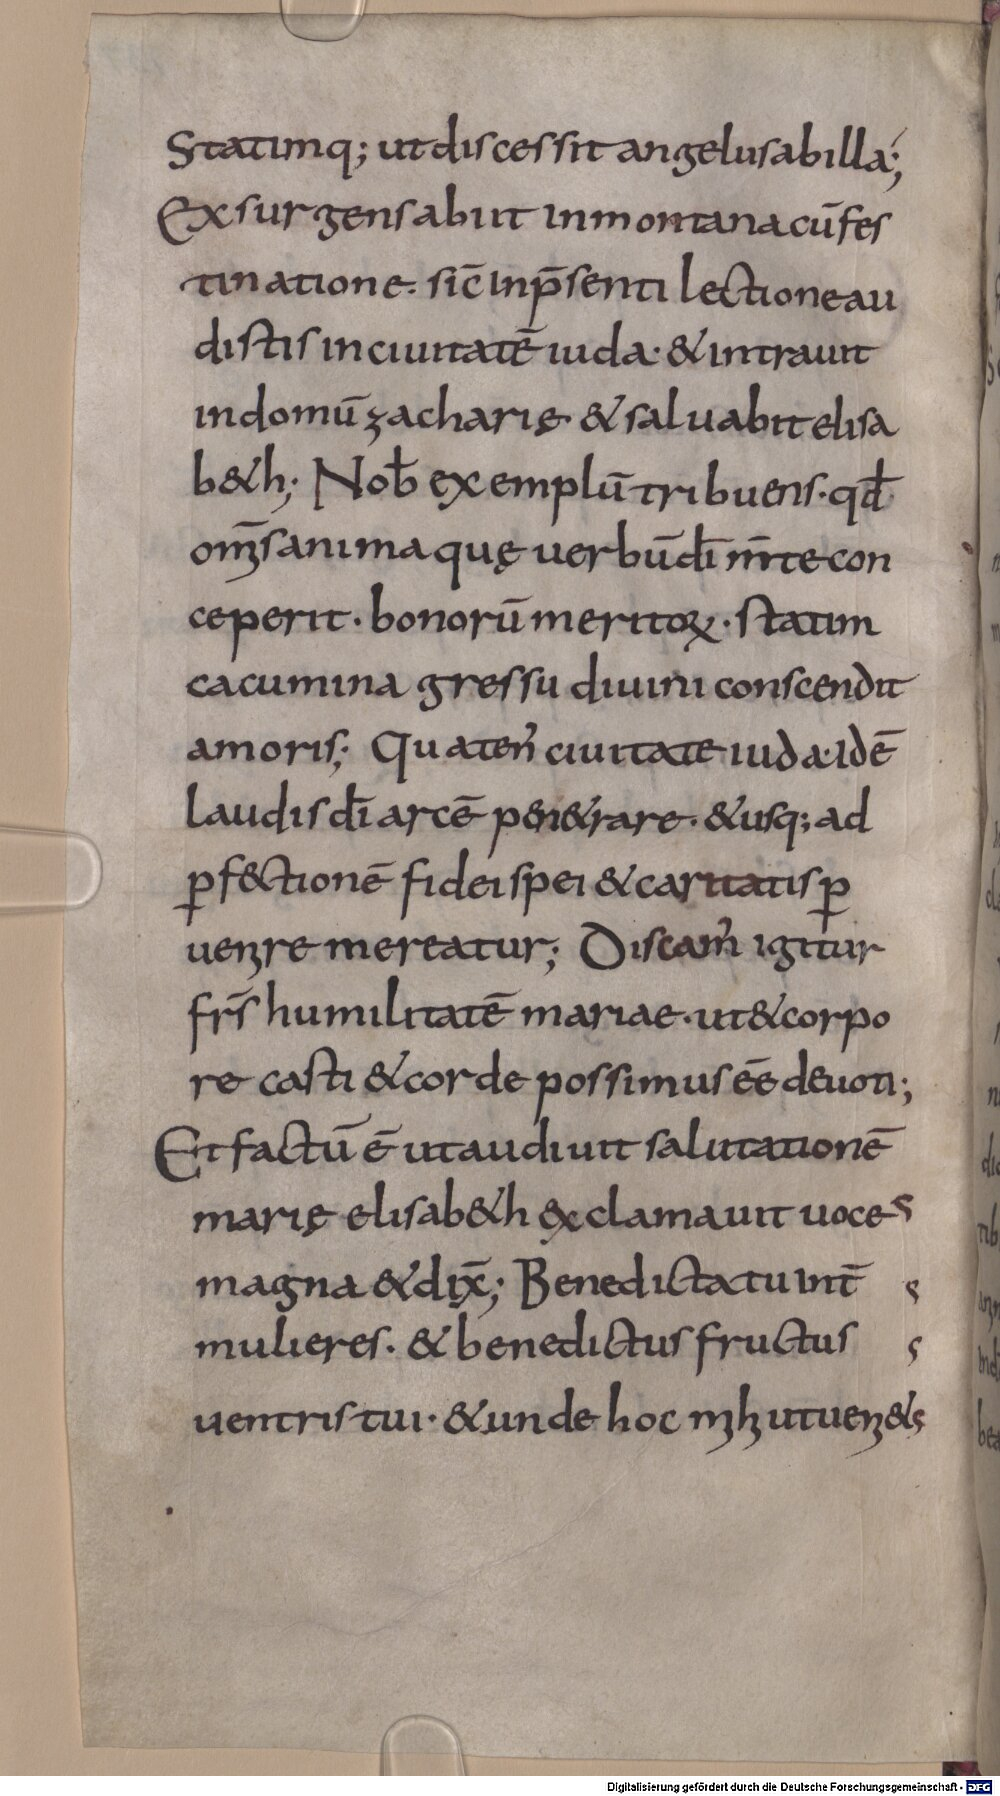 Statimq; ut discessit angelus ab illa;
Exsurgens abiit in montana cū fes
tinatione. sic̄ in p̄senti lectione au
distis in ciuitatē iuda· & intrauit
in domū zacharię· & saluabit elisa
b&h; Nob̄ exemplū tribuens· qđ
om̄s anima quę uerbū dī m̄te con
ceperit· bonorū meritoꝝ· statim
cacumina gressu diuini conscendit
amoris; Quaten̄ ciuitate iuda· idē
laudis dī arcē pen&rare· & usq; ad
ꝑf&ctionē fidei spei & caritatis ꝑ
uenire mereatur; Discam̄ igitur
fr̄s humilitatē mariae· ut & corpo
re casti & corde possimus eē deuoti;
Et factū ē ut audiuit salutationē
marię elisab&h exclamauit uoce s
magna & dix̄; Benedicta tu int̄ s
mulieres· & benedictus fructus s
uentris tui· & unde hoc mihi ut ueni& s
Digitalisierung gefördert durch die Deutsche Forschungsgemeinschaft - DFG